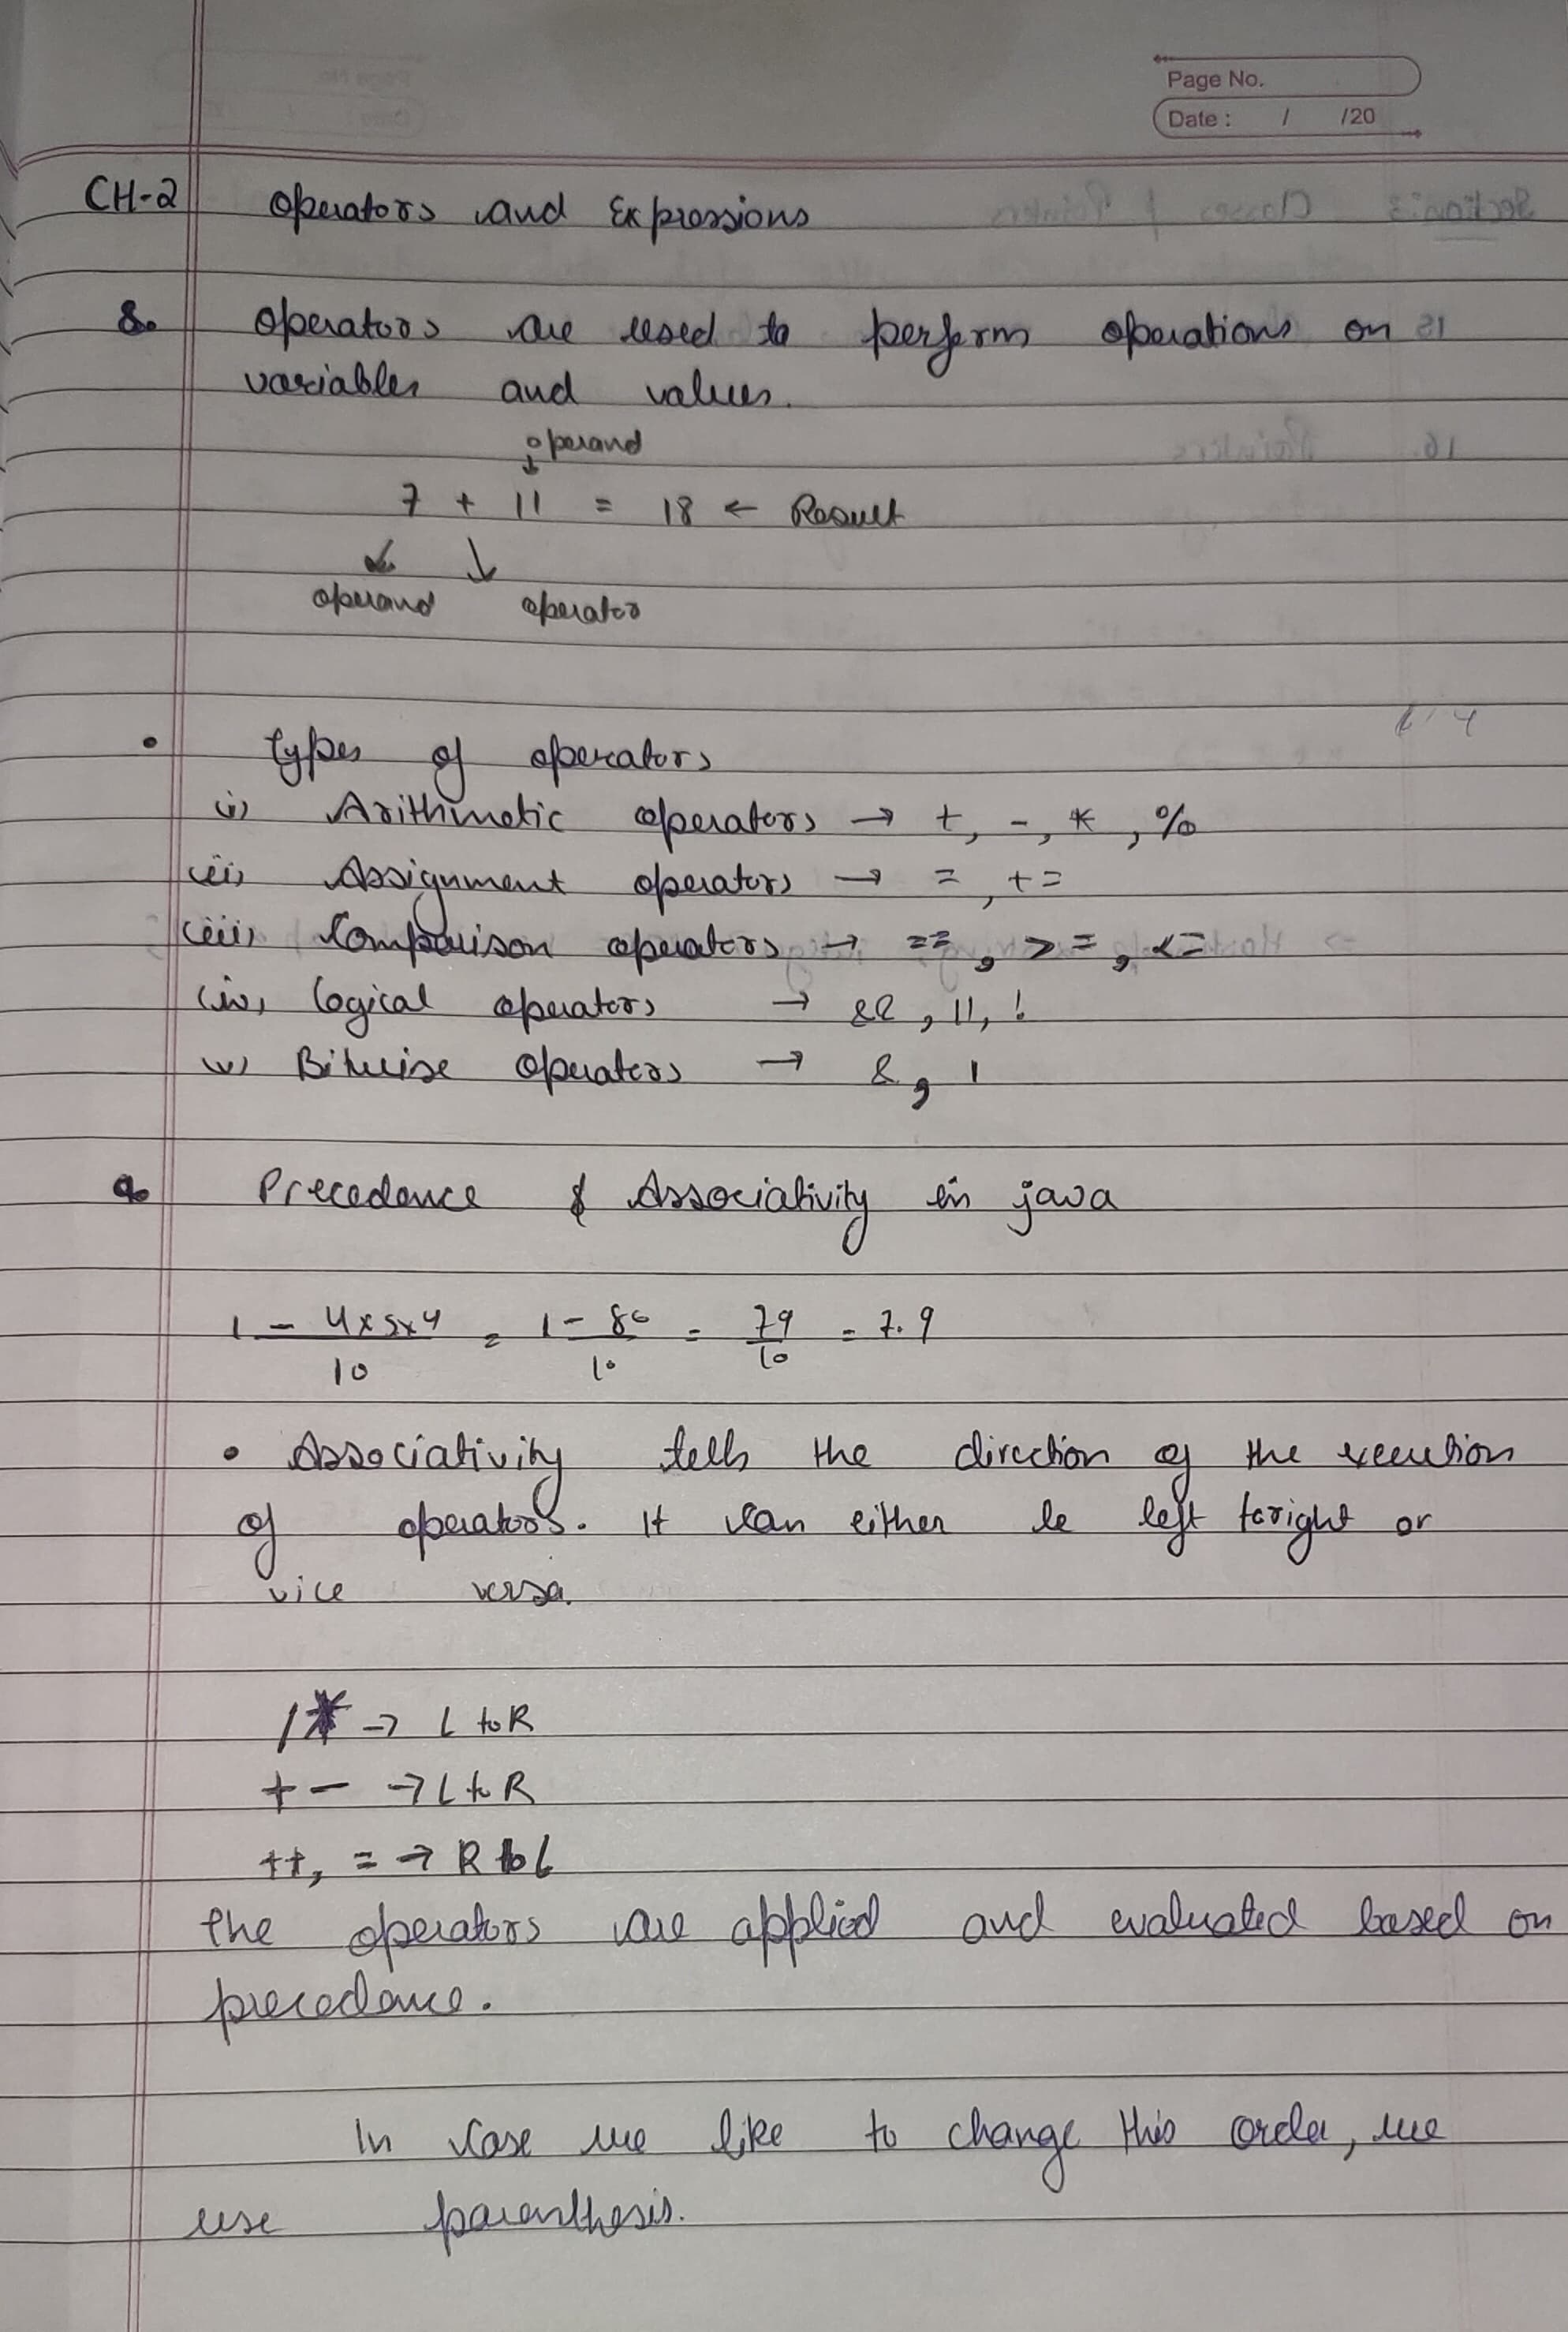 Page No.
Date : / /20
CH-2 Operators and Expressions
8. Operators are used to perform operations on
variables and values.
operand
↓
7 + 11 = 18 ← Result
↙ ↓
operand operator
• Types of operators
(i) Arithmetic operators → +, -, *, %
(ii) Assignment operators → =, +=
(iii) Comparison operators → ==, >=, <=
(iv) Logical operators → &&, ||, !
(v) Bitwise operators → &, |
9. Precedence & Associativity in java
1 - 4x5x4 = 1 - 80 = 79 = 7.9
10 10 10
• Associativity tells the direction of the execution
of operators. It can either be left to right or
vice versa.
/ * → L to R
+ - → L to R
++, = → R to L
The operators are applied and evaluated based on
precedence.
In case we like to change this order, we
use parenthesis.